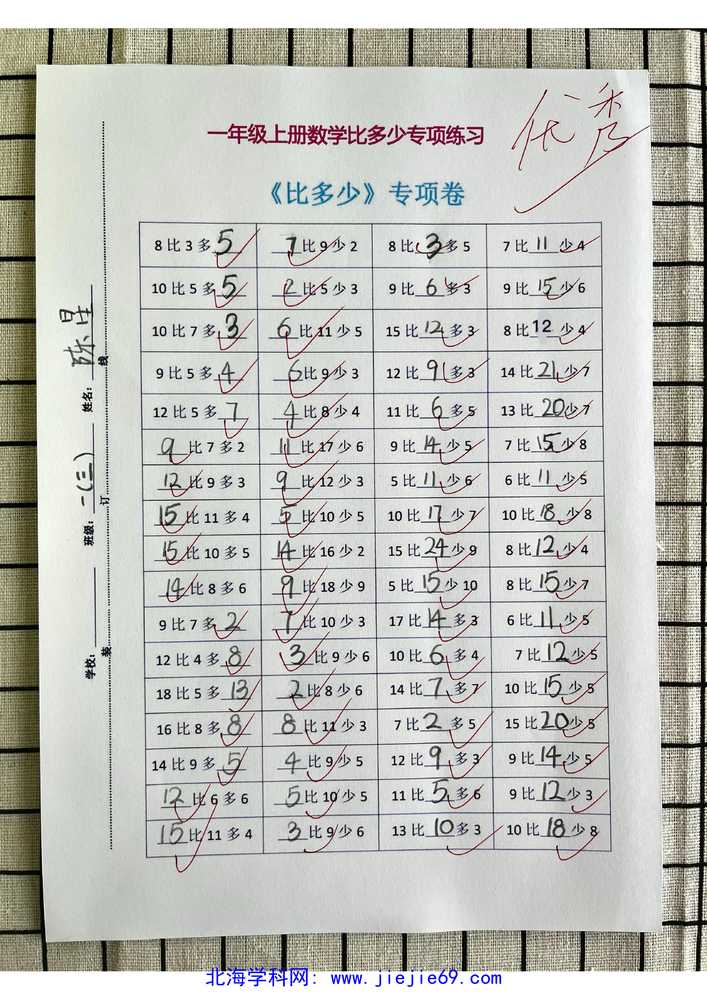 优秀
一年级上册数学比多少专项练习
《比多少》专项卷
学校：______ 班级：一(三) 姓名：陈星
装 订 线
8比3多5 7比9少2 8比3多5 7比11少4
10比5多5 2比5少3 9比6多3 9比15少6
10比7多3 6比11少5 15比12多3 8比12少4
9比5多4 6比9少3 12比9多3 14比21少7
12比5多7 4比8少4 11比6多5 13比20少7
9比7多2 11比17少6 9比14少5 7比15少8
12比9多3 9比12少3 5比11少6 6比11少5
15比11多4 5比10少5 10比17少7 10比18少8
15比10多5 14比16少2 15比24少9 8比12少4
14比8多6 9比18少9 5比15少10 8比15少7
9比7多2 7比10少3 17比14多3 6比11少5
12比4多8 3比9少6 10比6多4 7比12少5
18比5多13 2比8少6 14比7多7 10比15少5
16比8多8 8比11少3 7比2多5 15比20少5
14比9多5 4比9少5 12比9多3 9比14少5
12比6多6 5比10少5 11比5多6 9比12少3
15比11多4 3比9少6 13比10多3 10比18少8
北海学科网: www.jiejie69.com